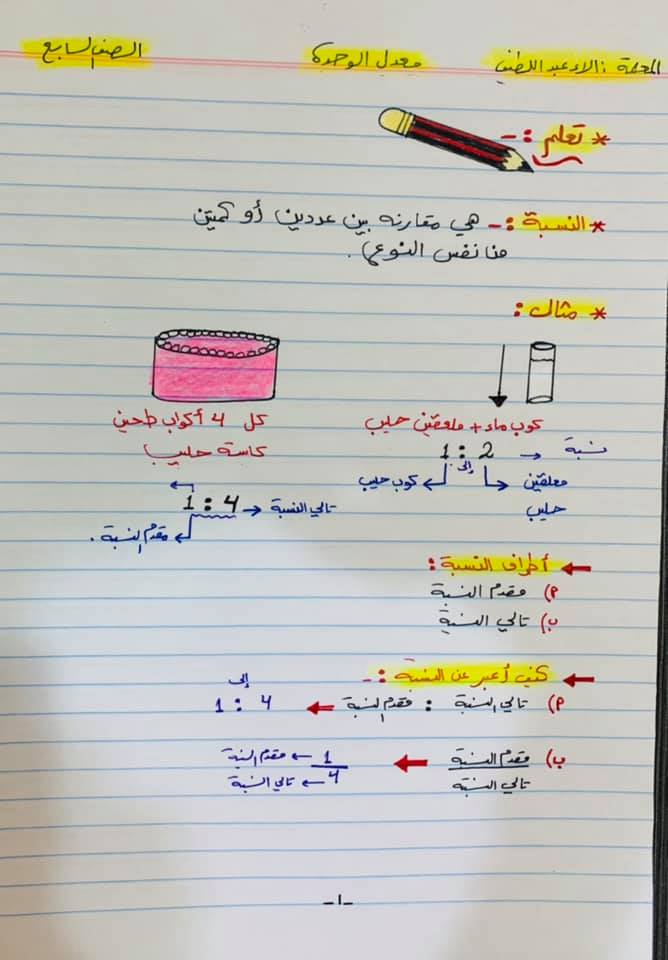 المعلمة : الاء عبد اللطيف
معدل الوحدة
الصف السابع
* تعلم : -
* النسبة : - هي مقارنه بين عددين أو كميتين
من نفس النوع .
* مثال :
كوب ماء + ملعقتين حليب
نسبة → 2 : 1
إلى
معلقتين حليب
كوب حليب
كل 4 أكواب طحين
كاسة حليب
1 : 4 → تالي النسبة
مقدم النسبة .
← أطراف النسبة :
أ) مقدم النسبة
ب) تالي النسبة
← كيف أعبر عن النسبة : -
أ) تالي النسبة : مقدم النسبة ← 4 : 1
إلى
ب) مقدم النسبة ← 1 ← مقدم النسبة
تالي النسبة 4 ← تالي النسبة
-١-